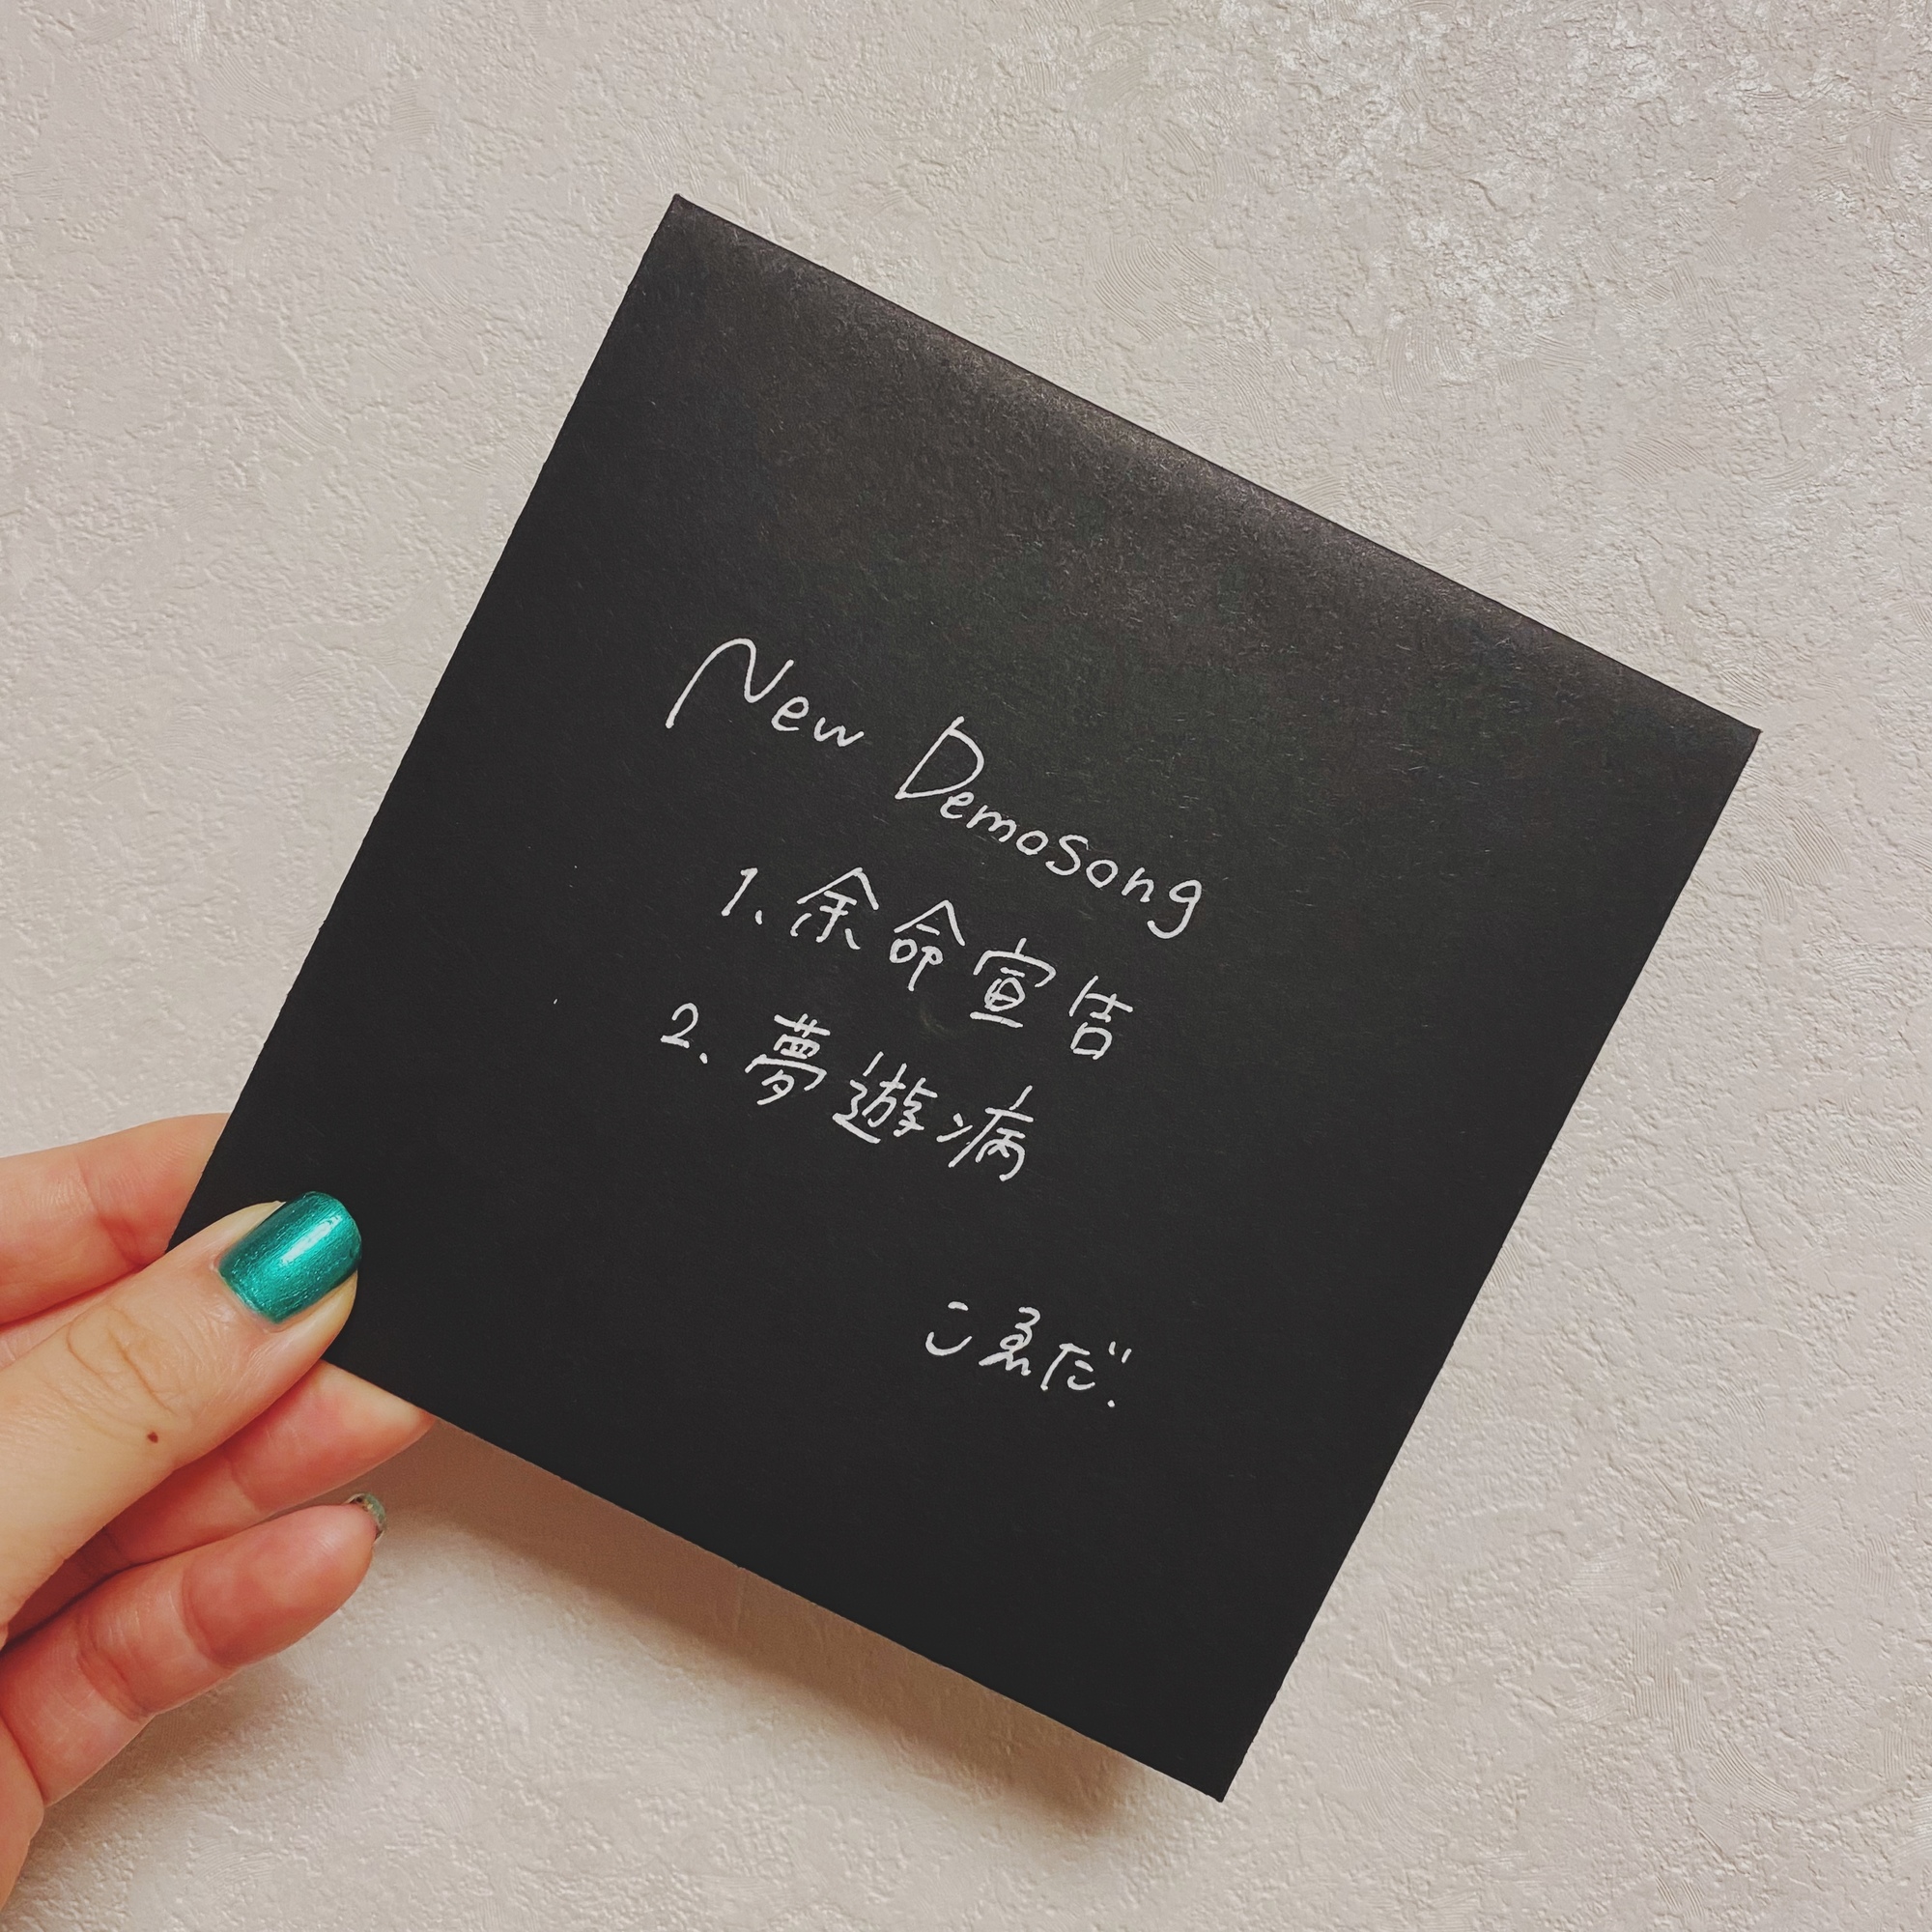 New Demosong
1. 余命宣告
2. 夢遊病
こゑだ.